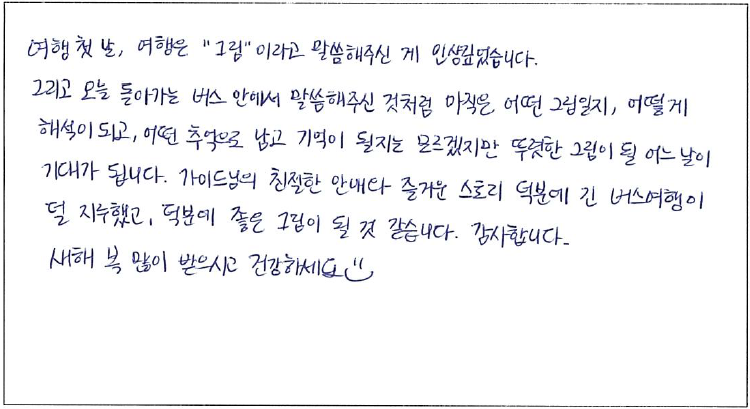 여행 첫 날, 여행은 "그림"이라고 말씀해주신 게 인상깊었습니다.
그리고 오늘 돌아가는 버스 안에서 말씀해주신 것처럼 아직은 어떤 그림일지, 어떻게
해석이 되고, 어떤 추억으로 남고 기억이 될지는 모르겠지만 뚜렷한 그림이 될 어느 날이
기대가 됩니다. 가이드님의 친절한 안내와 즐거운 스토리 덕분에 긴 버스여행이
덜 지루했고, 덕분에 좋은 그림이 될 것 같습니다. 감사합니다.
새해 복 많이 받으시고 건강하세요